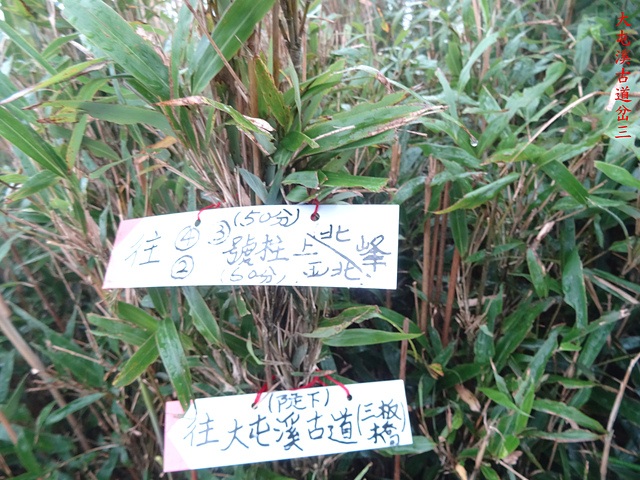 大屯溪古道岔三
(50分)
往④③號柱上北峰
②
(50分) 西北
(陡下)
往大屯溪古道(三板橋)